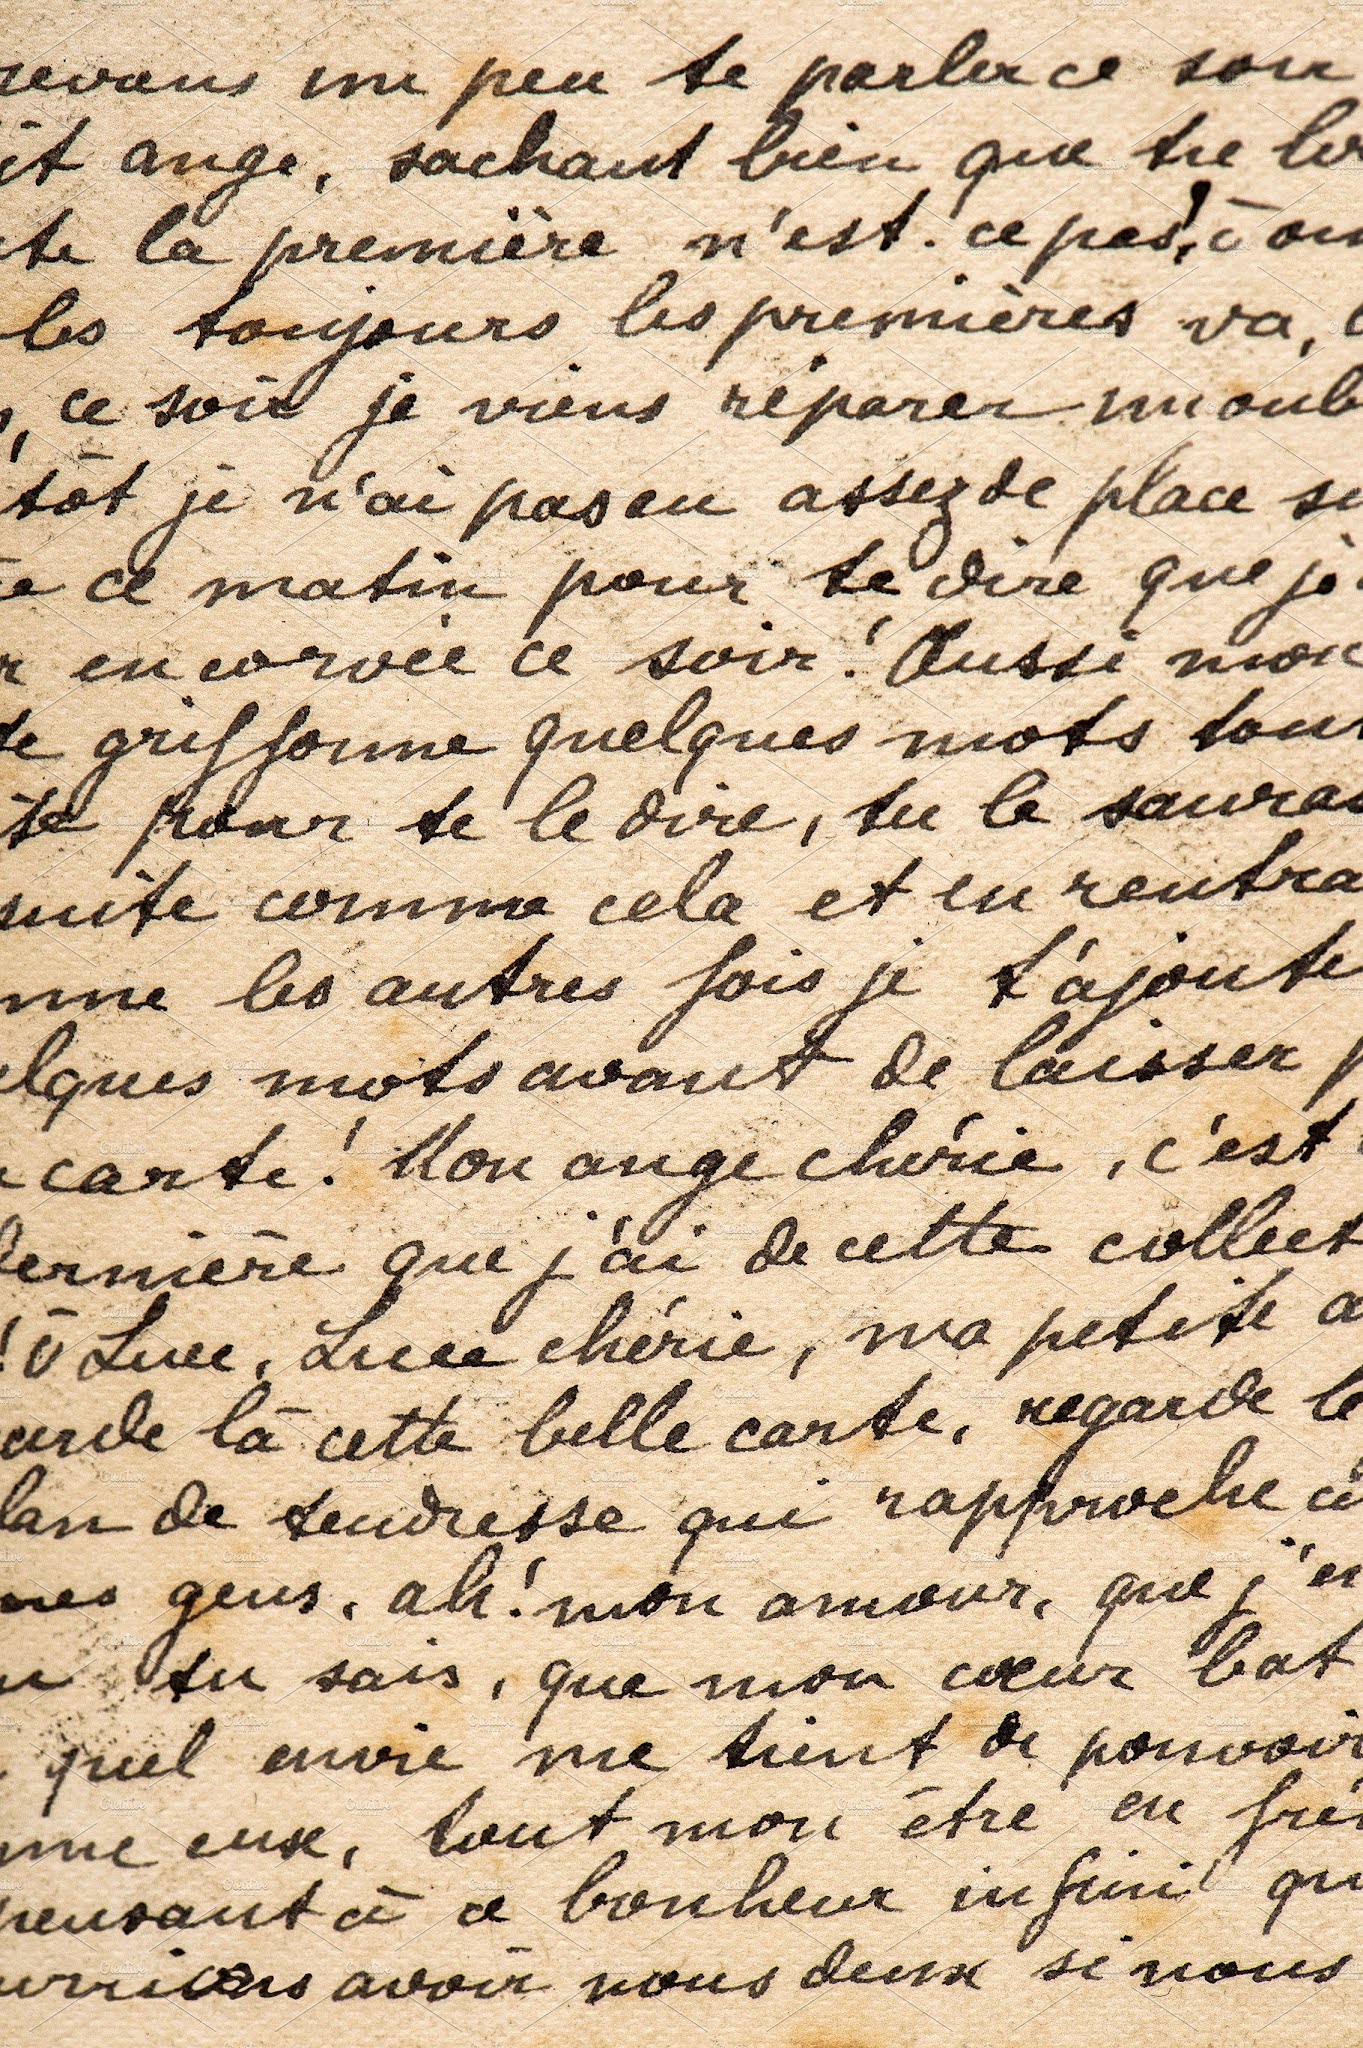 un peu te parler ce soir
ange, sachant bien que tu
la première n'est-ce pas!, ô
les toujours les premières va,
, ce soir je viens réparer mon oub
tôt je n'ai pas eu assez de place su
ce matin pour te dire que je
en corvée ce soir! Aussi mon
te griffonne quelques mots tout
pour te le dire, tu le sauras
suite comme cela et en rentra
mme les autres fois je t'ajoute
elques mots avant de laisser p
carte! Mon ange chérie, c'est
dernière que j'ai de cette collect
! ô Luce, Luce chérie, ma petite a
arde là cette belle carte, regarde le
lan de tendresse qui rapproche
gens, ah! mon amour, que j'en
tu sais, que mon cœur bat
quel envie me tient de pouvoir
mme eux, tout mon être en fré
pensant à ce bonheur infini qu
urrions avoir nous deux si nous